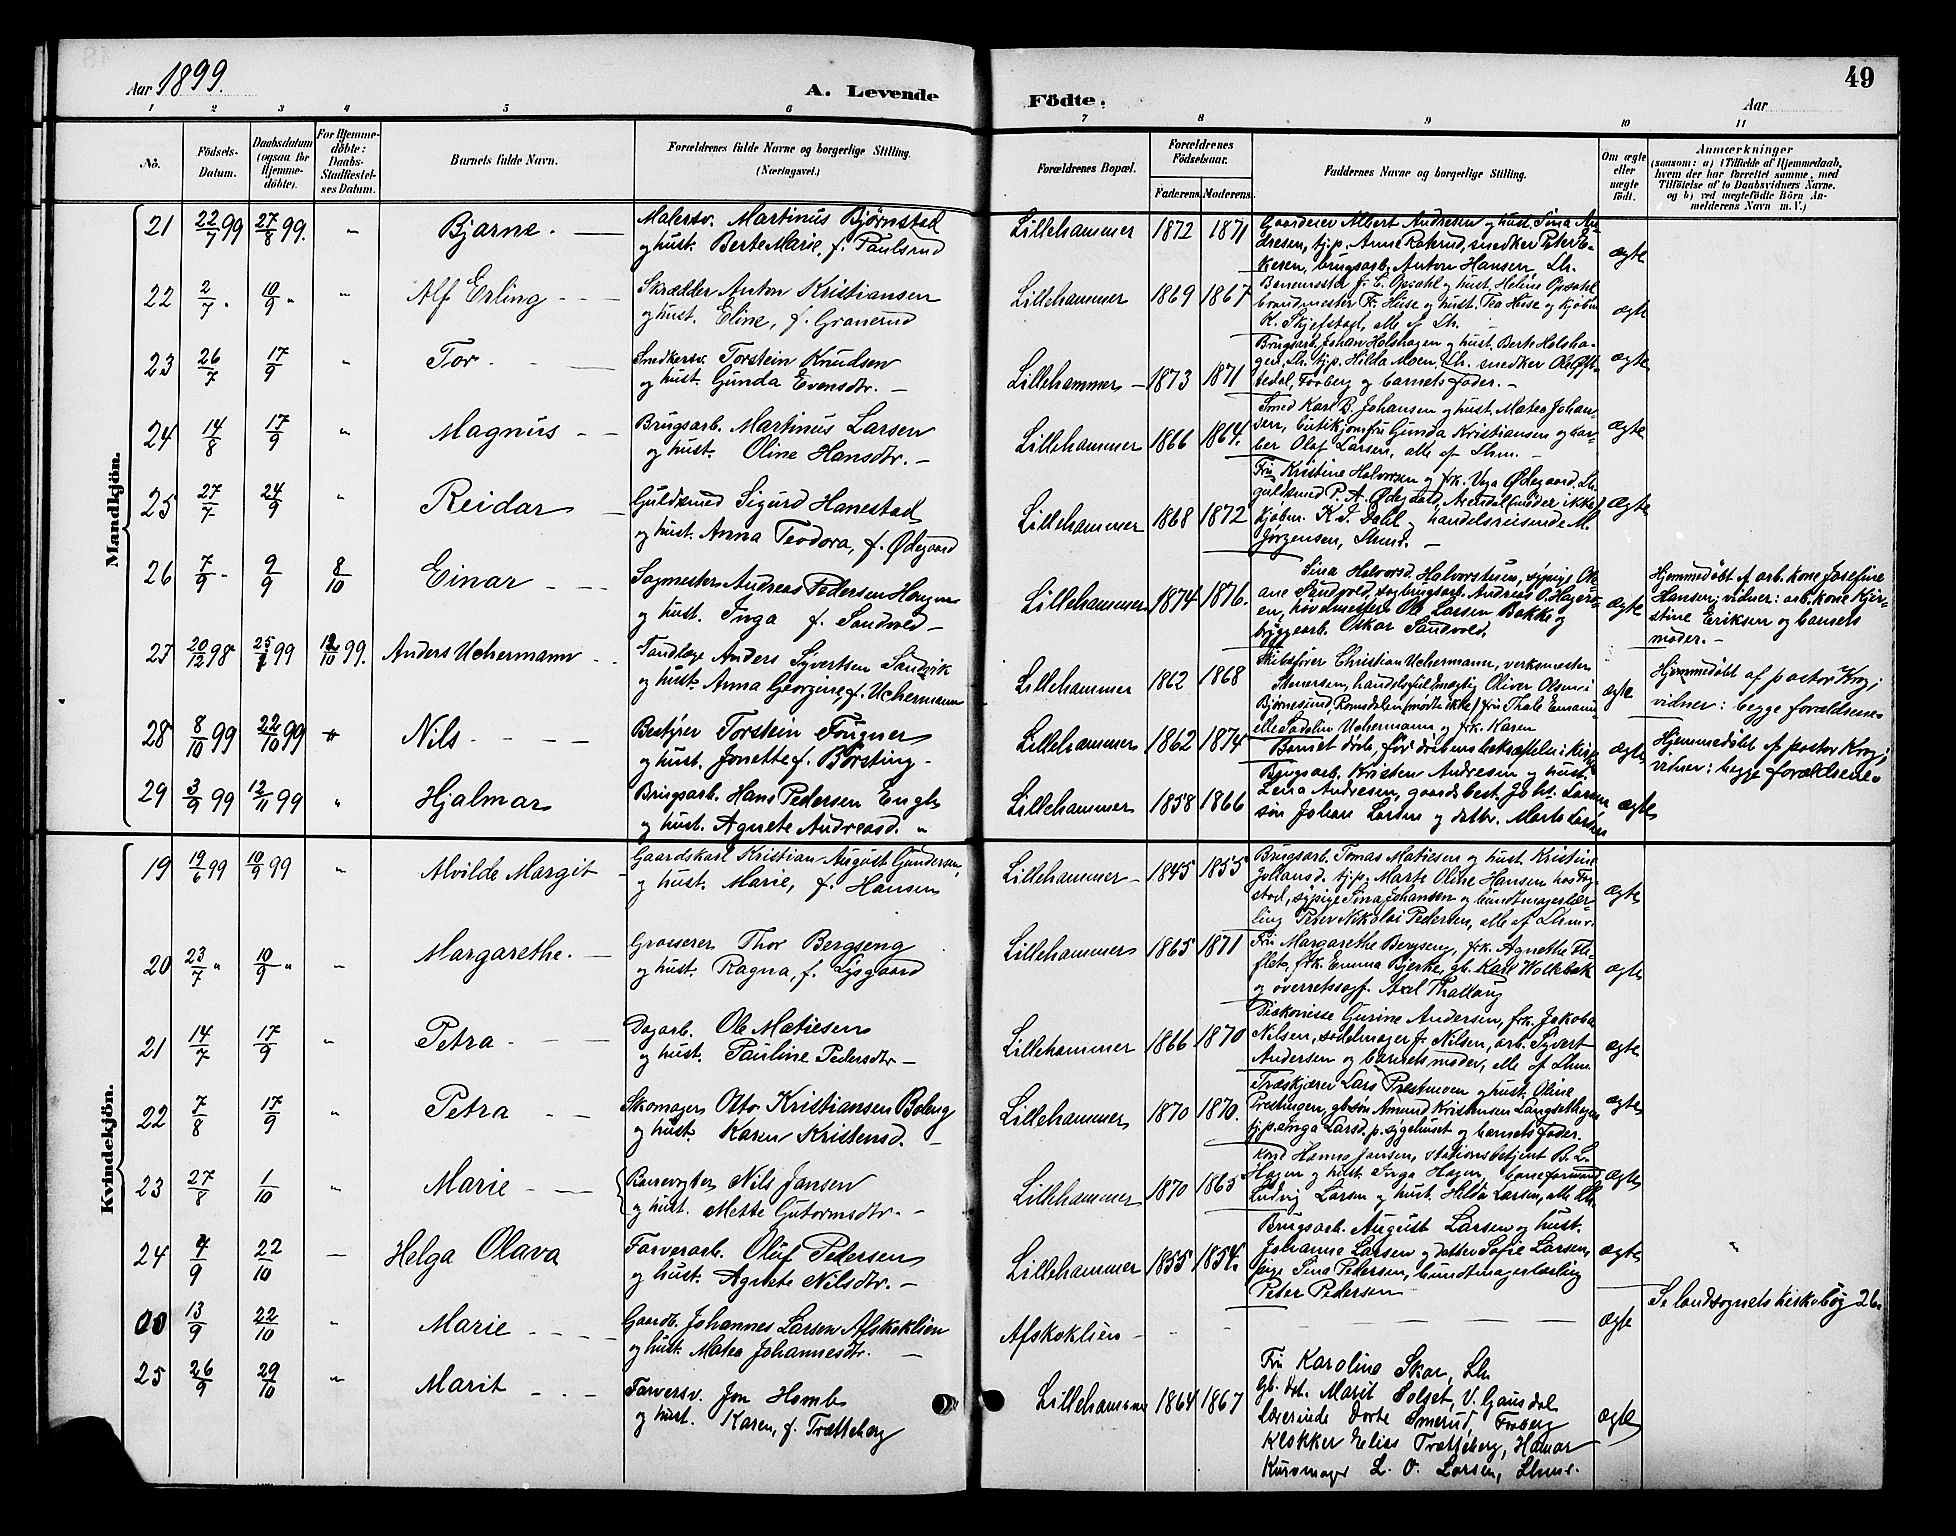 Aar 1899.
A. Levende Födte.
Aar
49
1 2 3 4 5 6 7 8 9 10 11
Nô.
Födsels-Datum.
Daabsdatum (ogsaa for Hjemme-döbte).
For Hjemme-döbte: Daabs-Stadfæstel-ses Datum.
Barnets fulde Navn.
Forældrenes fulde Navne og borgerlige Stilling. (Næringsvei.)
Forældrenes Bopæl.
Forældrenes Födselsaar.
Faderens.
Moderens.
Faddernes Navne og borgerlige Stilling.
Om ægte eller uægte födt.
Anmærkninger
(saasom: a) i Tilfælde af Hjemmedaab, hvem der har forrettet samme, med Tilföielse af to Daabsvidners Navne. og b) ved uægtefödte Börn Anmelderens Navn m. V.)
Mandkjön.
21 22/7 99 27/8 99. " Bjarne. Malersv. Martinus Bjørnstad
og hust. Berte Marie, f. Paulsrud
Lillehammer 1872 1871 Gaardeier Albert Andresen og hust. Sina An-
dresen, tj.p. Anne Roterud, snedker Peter E-
kesen, brugsarb. Anton Hansen, Lh. ægte
22 2/7 " 10/9 " " Alf Erling Skrædder Anton Kristiansen
og hust. Eline, f. Granerud
Lillehammer 1869 1867 Banemester J. C. Opsahl og hust. Heline Opsahl
brandmester Fr. Huse og hust. Tea Huse og kjøbm.
K. Skjefstad, alle af Lh. ægte
23 26/7 17/9 " Tor Snedkersv. Torstein Knudsen
og hust. Gunda Evensdtr.
Lillehammer 1873 1871 Brugsarb. Johan Holshagen og hust. Berte Holsha-
gen, Lh. tj.p. Hilda Moen, Lh. snedker Ole
Faaberg og barnets fader. ægte
24 14/8 17/9 " Magnus Brugsarb. Martinus Larsen
og hust. Oline Hansdtr.
Lillehammer 1866 1864. Smed Karl B. Johansen og hust. Matea Johan-
sen, butikjomfru Gunda Kristiansen og bar-
ber Olaf Larsen, alle af Lhm. ægte
25 27/7 24/9 " Reidar Guldsmed Sigurd Hanestad
og hust. Anna Teodora, f. Ødegaard
Lillehammer 1868 1872 Fru Kristine Halvorsen og frk. Vega Ødegaard, Lh.
guldsmed P. A. Ødegaard, Arendal (møder ikke)
kjøbm. K. J. Dahl og handelsreisende M.
Jørgensen, Lhmr. ægte
26 7/9 " 9/9 8/10 Einar Sagmester Andreas Pedersen Haugen
og hust. Inga f. Sandvold
Lillehammer 1874 1876. Sina Halvorsd. Halvorstuen, sypige Ol-
ane Sandvold, sagbrugsarb. Andreas O. Hager-
en, hovmester Ole Larsen Bakke og
bryggearb. Oskar Sandvold. ægte
Hjemmedøbt af arb. kone Josefine
Hansen; vidner: arb. kone Kjer-
stine Eriksen og barnets
moder.
27 20/12 98 25/1 99 12/10 99. Anders Uchermann Tandlæge Anders Syvertsen Sandvik
og hust. Anna Georgine, f. Uchermann
Lillehammer 1862 1868 Skibsfører Christian Uchermann, verksmester
Stenersen, handelsfuldmægtig Oliver Olsen i
Bjørnesund, Romsdalen (mødte ikke) fru Thale Emanu-
elle Sadolin Uchermann og frk. Karen ægte
Hjemmedøbt af pastor Krog;
vidner: begge forældrene
28 8/10 99 22/10 99 " Nils Bestyrer Torstein Fougner
og hust. Jonette f. Børsting
Lillehammer 1862 1874 Barnet døde, før daabens bekræftelse i kirke ægte
Hjemmedøbt af pastor Krog;
vidner: begge forældrene
29 3/9 99 12/11 99 " Hjalmar Brugsarb. Hans Pedersen Engh
og hust. Agnete Andreasd.
Lillehammer 1858 1866 Brugsarb. Kristen Andresen og hust.
Lena Andresen, gaardbest. Johs. Larsen
søn Johan Larsen og dattr. Marte Larsen ægte
Kvindekjön.
19 19/6 99 10/9 99 " Alvilde Margit Gaardskarl Kristian August Gundersen,
og hust. Marie, f. Hansen
Lillehammer 1845 1855 Brugsarb. Tomas Matiesen og hust. Kristine
tj.p. Marte Oline Hansen hos
sypige Sina Johansen og buntmagerlær-
ling Peter Nikolai Pedersen, alle af Lhmr. ægte
20 23/7 " 10/9 " " Margarethe. Grosserer Thor Bergseng
og hust. Ragna, f. Lysgaard
Lillehammer 1865 1871 Fru Margarethe Bergseng, frk. Agnethe
frk. Emma Bjerke, gb. Karl
og overretssagf. Axel Thallaug ægte
21 14/7 17/9 " Petra Dagarb. Ole Matiesen
og hust. Pauline Pedersdtr.
Lillehammer 1866 1870 Diakonisse Gurine Andersen, frk. Jakoba
Nilsen, sadelmager J. Nilsen, arb. Syvert
Andersen og barnets moder, alle af Lhm. ægte
22 7/8 17/9 " Petra Skomager Otto Kristiansen Boleng
og hust. Karen Kristensd.
Lillehammer 1870 1870. Træskjærer Lars Prestmoen og hust. Oline
gb.søn Amund Kristensen Langsethagen
tj.p. Inga Larsd. p. sygehuset og barnets fader. ægte
23 27/8 1/10 " Marie Banevogter Nils Jansen
og hust. Mette Gutormsdtr.
Lillehammer 1870 1865 Kond. Hanna Jansen, stationsbetjent B. L.
Hagen og hust. Inga Hagen, baneformand
Ludvig Larsen og hust. Hilda Larsen, alle Lh. ægte
24 4/9 22/10 — Helga Olava Farverarb. Oluf Pedersen
og hust. Agnete Nilsdtr.
Lillehammer 1855 1854. Brugsarb. August Larsen og hust.
Johanne Larsen og datter Sofie Larsen,
pige Sina Pedersen, buntmagerlærling
Peter Pedersen ægte "
00 13/9 22/10 " Marie Gaardb. Johannes Larsen Afskoklien
og hust. Matea Johannesdtr.
Afskoklien ægte Se landsognets kirkebog 26.
25 26/9 29/10 " Marit Farversv. Jon Homb
og hust. Karen, f. Trætteberg
Lillehammer 1864 1867 Fru Karoline Skar, Lh.
Gb. dat. Marit Solset, V. Gausdal
Lærerinde Dorte Smerud, Faaberg
Klokker Trætteberg, Hamar
L. O. Larsen, Lhmr. ægte